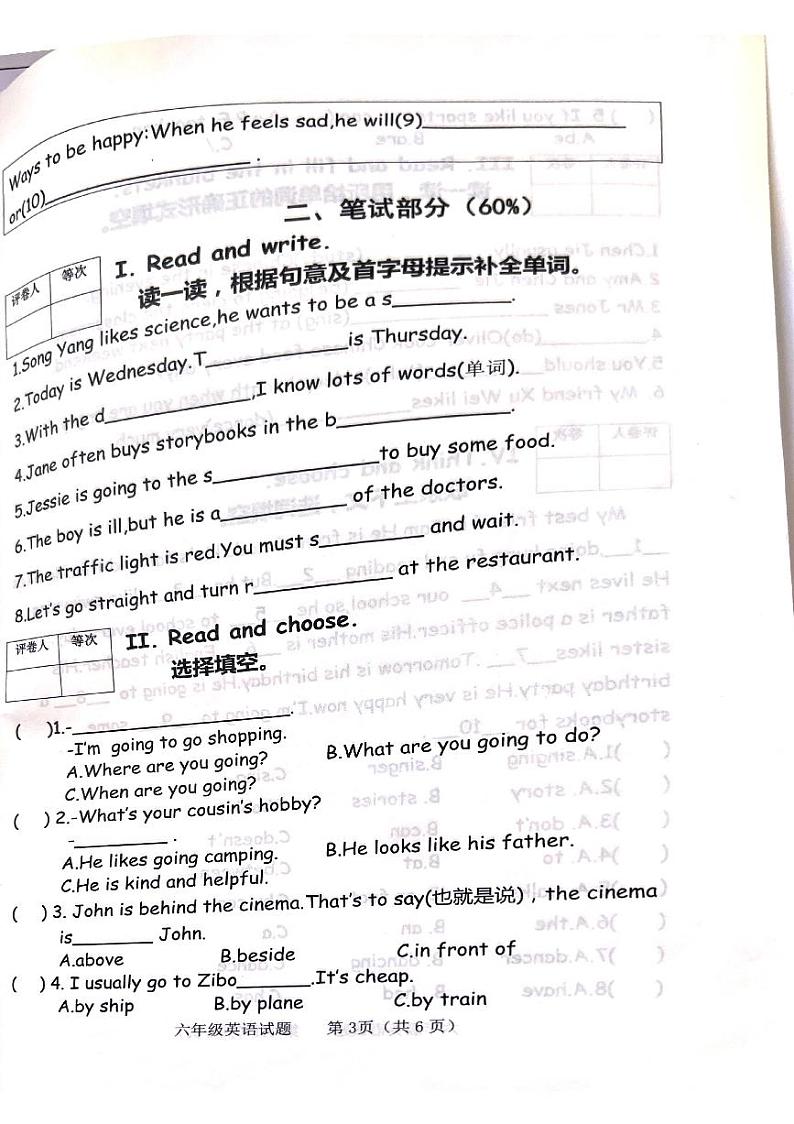 Ways to be happy:When he feels sad,he will(9)____________________
or(10)____________________ .
二、笔试部分（60%）
评卷人 等次
I. Read and write.
读一读，根据句意及首字母提示补全单词。
1.Song Yang likes science,he wants to be a s____________.
2.Today is Wednesday.T______________is Thursday.
3.With the d______________,I know lots of words(单词).
4.Jane often buys storybooks in the b_________________.
5.Jessie is going to the s________________to buy some food.
6.The boy is ill,but he is a____________ of the doctors.
7.The traffic light is red.You must s__________ and wait.
8.Let's go straight and turn r_____________ at the restaurant.
评卷人 等次
II. Read and choose.
选择填空。
( )1.-______________________.
-I'm going to go shopping.
A.Where are you going? B.What are you going to do?
C.When are you going?
( ) 2.-What's your cousin's hobby?
-_________ .
A.He likes going camping. B.He looks like his father.
C.He is kind and helpful.
( ) 3. John is behind the cinema.That's to say(也就是说)，the cinema
is________ John.
A.above B.beside C.in front of
( ) 4. I usually go to Zibo_______.It's cheap.
A.by ship B.by plane C.by train
六年级英语试题 第 3页（共 6 页）